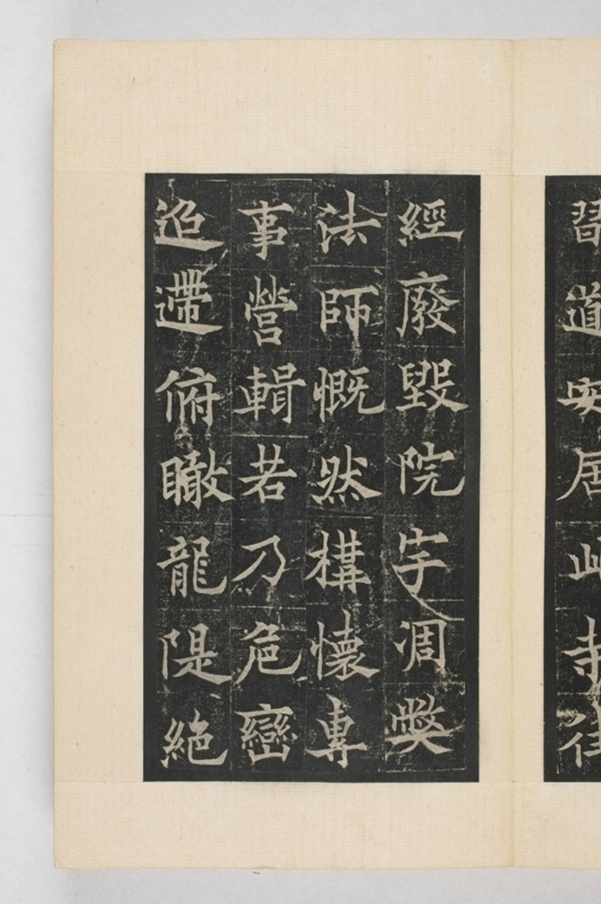 道安居此寺往
經廢毀院宇凋弊
法師慨然構懷專
事營輯若乃危巒
迢遰俯瞰龍隄絕